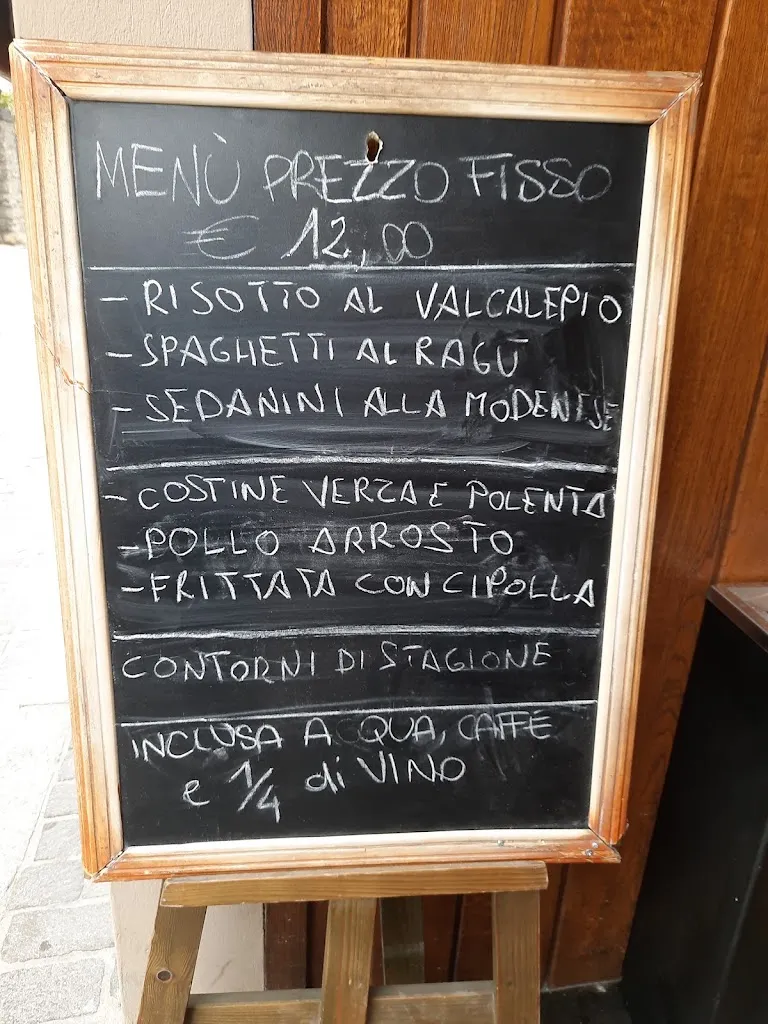 MENÙ PREZZO FISSO
€ 12,00
- RISOTTO AL VALCALEPIO
- SPAGHETTI AL RAGÙ
- SEDANINI ALLA MODENESE
- COSTINE VERZA E POLENTA
- POLLO ARROSTO
- FRITTATA CON CIPOLLA
CONTORNI DI STAGIONE
INCLUSA ACQUA, CAFFÈ
e 1/4 di VINO